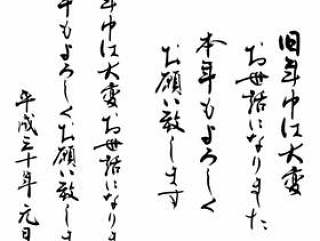 旧年中は大変
お世話になりました
本年もよろしく
お願い致します
年中は大変お世話になりま
年もよろしくお願い致しま
平成三十年 元日